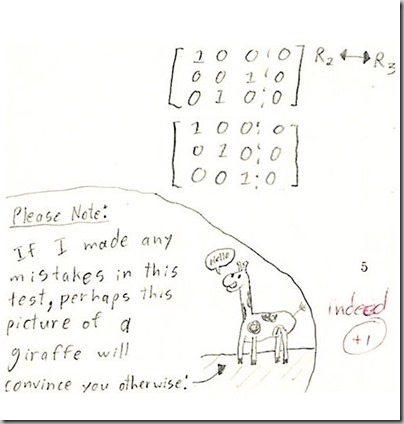 [ 1 0 0 ¦ 0 ] R₂ ↔ R₃
[ 0 0 1 ¦ 0 ]
[ 0 1 0 ¦ 0 ]
[ 1 0 0 ¦ 0 ]
[ 0 1 0 ¦ 0 ]
[ 0 0 1 ¦ 0 ]
Please Note:
If I made any
mistakes in this
test, perhaps this
picture of a
giraffe will
convince you otherwise:
Hello
5
indeed
+1